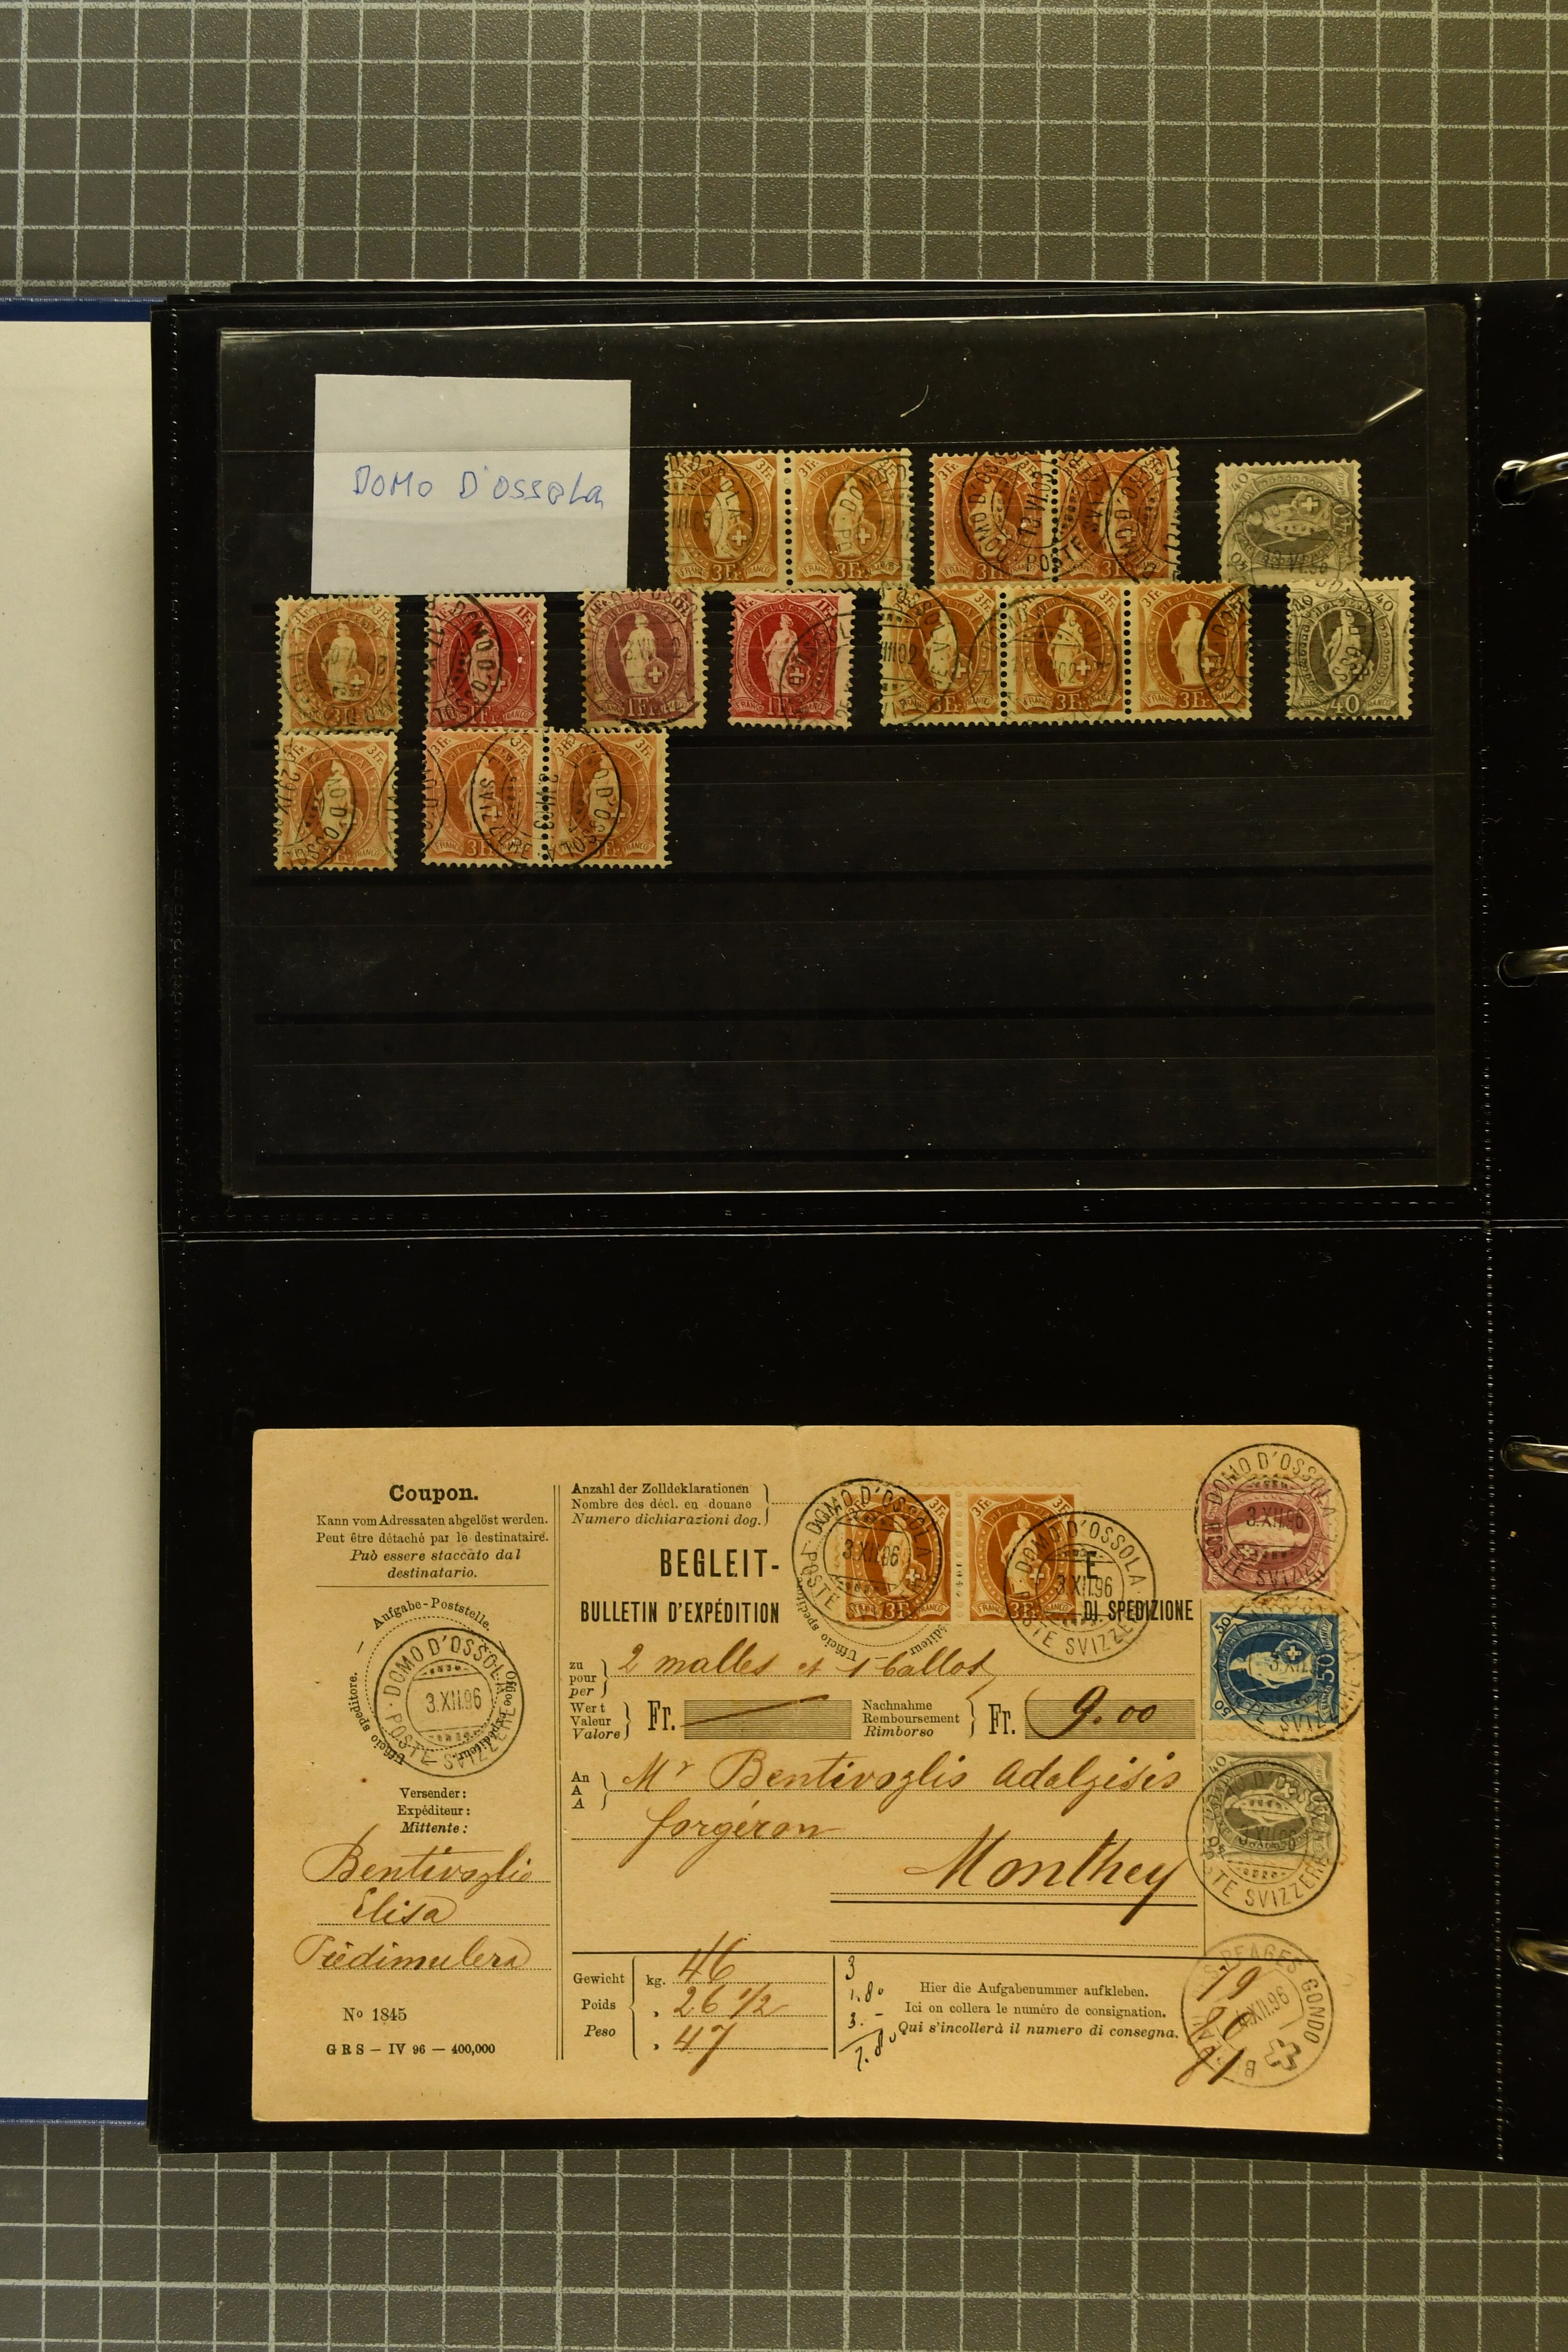 DOMO D'OSSOLA
3 Fr. 3 Fr.
Coupon.
Kann vom Adressaten abgelöst werden.
Peut être détaché par le destinataire.
Può essere staccato dal
destinatario.
Aufgabe-Poststelle.
Office expéditeur.
Ufficio speditore.
DOMO D'OSSOLA
3.XII.96
POSTE SVIZZERE
Versender:
Expéditeur:
Mittente:
Bentivoglio
Elisa
Piedimulera
No 1845
G R S — IV 96 — 400,000
Anzahl der Zolldeklarationen
Nombre des décl. en douane
Numero dichiarazioni dog.
BEGLEIT-
BULLETIN D'EXPÉDITION
DI SPEDIZIONE
DOMO D'OSSOLA
3.XII.96
POSTE SVIZZERE
DOMO D'OSSOLA
3.XII.96
POSTE SVIZZERE
zu
pour
per
2 malles et 1 ballot
Wert
Valeur
Valore
Fr.
Nachnahme
Remboursement
Rimborso
Fr. 9.00
An
A
A
Mr Bentivoglio Adalgisis
forgéron
Monthey
Gewicht
Poids
Peso
kg. 46
26 1/2
47
3
1.80
3.-
7.80
Hier die Aufgabenummer aufkleben.
Ici on collera le numéro de consignation.
Qui s'incollerà il numero di consegna.
DOMO D'OSSOLA
3.XII.96
POSTE SVIZZERE
50
40
DOMO D'OSSOLA
3.XII.96
POSTE SVIZZERE
PEAGES GONDO
4.XII.96
79
80
81